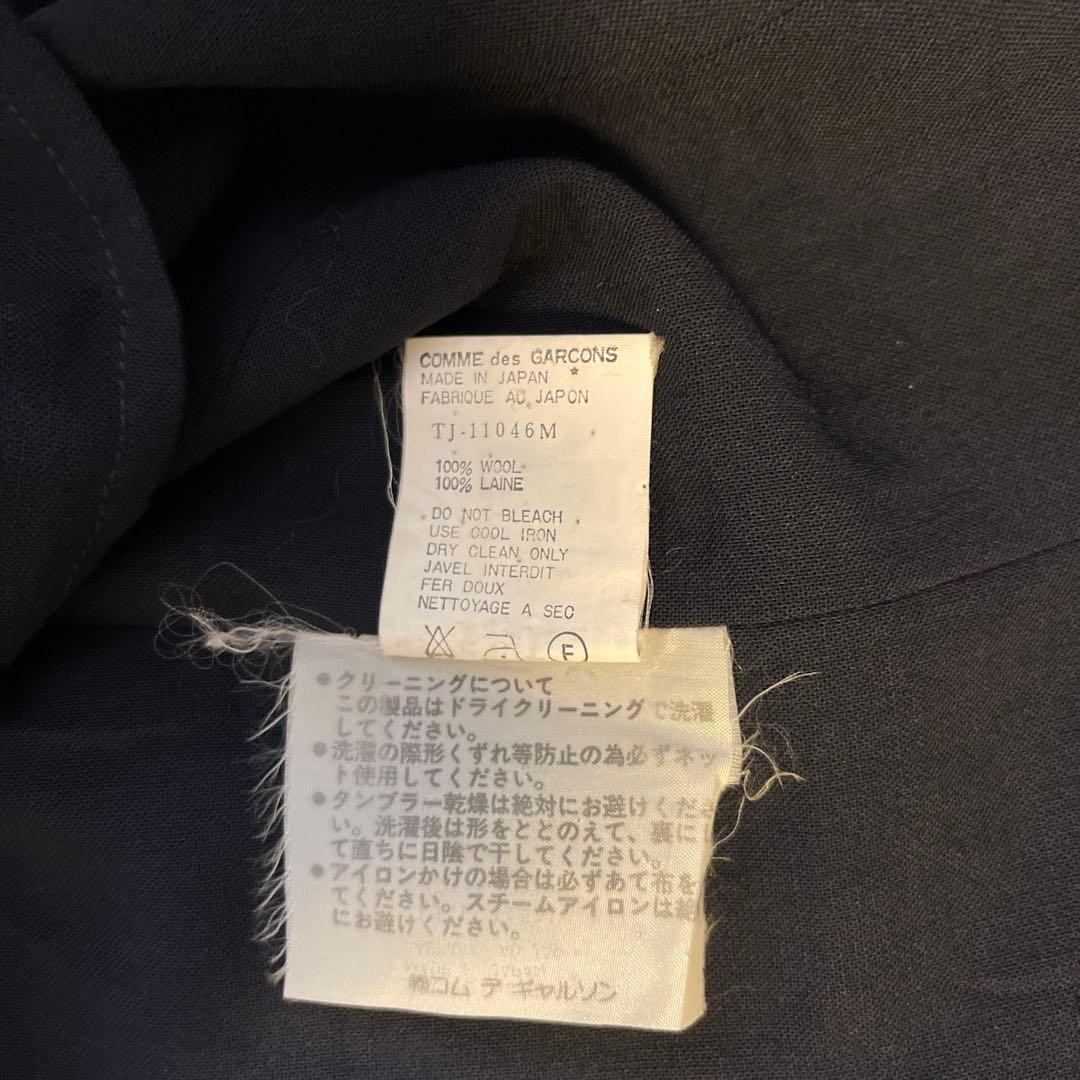 COMME des GARCONS
MADE IN JAPAN *
FABRIQUE AU JAPON
TJ-11046M
100% WOOL
100% LAINE
DO NOT BLEACH
USE COOL IRON
DRY CLEAN ONLY
JAVEL INTERDIT
FER DOUX
NETTOYAGE A SEC
F
●クリーニングについて
この製品はドライクリーニングで洗濯
してください。
●洗濯の際形くずれ等防止の為必ずネッ
ト使用してください。
●タンブラー乾燥は絶対にお避けくださ
い。洗濯後は形をととのえて、裏に
て直ちに日陰で干してください。
●アイロンかけの場合は必ずあて布を
てください。スチームアイロンは絶
にお避けください。
㈱コム デ ギャルソン